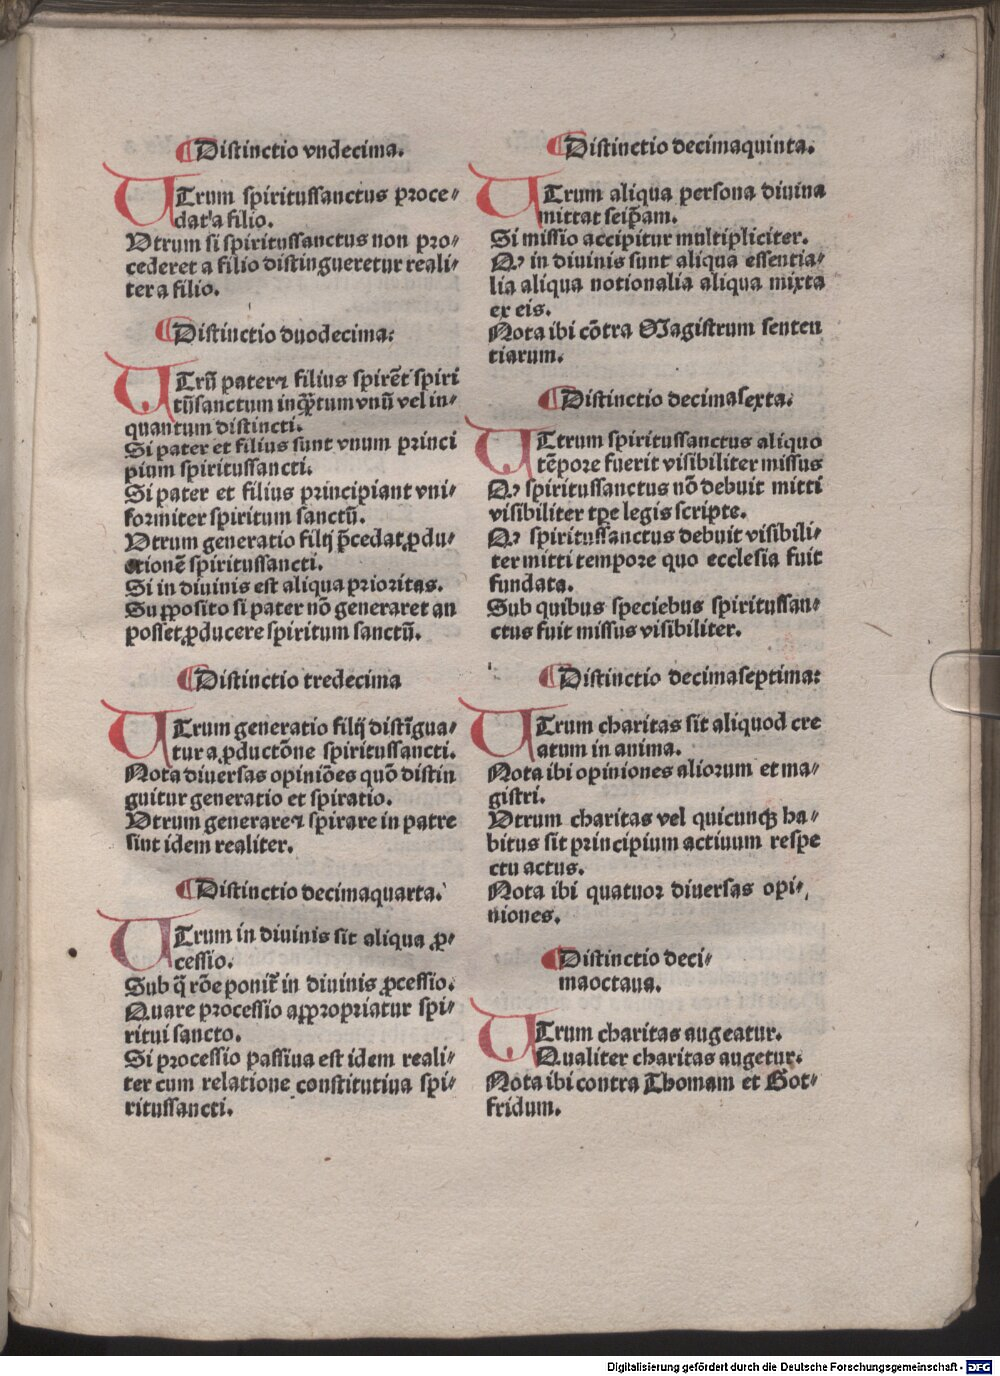 ¶Distinctio vndecima.
UTrum spiritussanctus proce⸗
dat a filio.
Vtrum si spiritussanctus non pro⸗
cederet a filio distingueretur reali⸗
ter a filio.
¶Distinctio duodecima:
UTrū pater ⁊ filius spirēt spiri
tūsanctum inqꝫtum vnū vel in⸗
quantum distincti.
Si pater et filius sunt vnum princi
pium spiritussancti.
Si pater et filius principiant vni⸗
formiter spiritum sanctū.
Vtrum generatio filij p̄cedat ꝓdu⸗
ctionē spiritussancti.
Si in diuinis est aliqua prioritas.
Supposito si pater nō generaret an
posset ꝓducere spiritum sanctū.
¶Distinctio tredecima
UTrum generatio filij distīgua⸗
tur a ꝓductōne spiritussancti.
Nota diuersas opiniōes quō distin
guitur generatio et spiratio.
Vtrum generare ⁊ spirare in patre
sint idem realiter.
¶Distinctio decimaquarta.
UTrum in diuinis sit aliqua ꝓ⸗
cessio.
Sub q̄ rōe ponit᷑ in diuinis ꝓcessio.
Quare processio appropriatur spi⸗
ritui sancto.
Si processio passiua est idem reali⸗
ter cum relatione constitutiua spi⸗
ritussancti.
¶Distinctio decimaquinta.
UTrum aliqua persona diuina
mittat seip̄am.
Si missio accipitur multipliciter.
Qꝛ in diuinis sunt aliqua essentia⸗
lia aliqua notionalia aliqua mixta
ex eis.
Nota ibi cōtra Magistrum senten
tiarum.
¶Distinctio decimasexta.
UTtrum spiritussanctus aliquo
tēpore fuerit visibiliter missus
Qꝛ spiritussanctus nō debuit mitti
visibiliter tꝑe legis scripte.
Qꝛ spiritussanctus debuit visibili⸗
ter mitti tempore quo ecclesia fuit
fundata.
Sub quibus speciebus spiritussan⸗
ctus fuit missus visibiliter.
¶Distinctio decimaseptima:
UTrum charitas sit aliquod cre
atum in anima.
Nota ibi opiniones aliorum et ma⸗
gistri.
Vtrum charitas vel quicunqꝫ ha⸗
bitus sit principium actiuum respe
ctu actus.
Nota ibi quatuor diuersas opi⸗
niones.
¶Distinctio deci⸗
maoctaua.
UTrum charitas augeatur.
Qualiter charitas augetur.
Nota ibi contra Thomam et Got⸗
fridum.
Digitalisierung gefördert durch die Deutsche Forschungsgemeinschaft - DFG